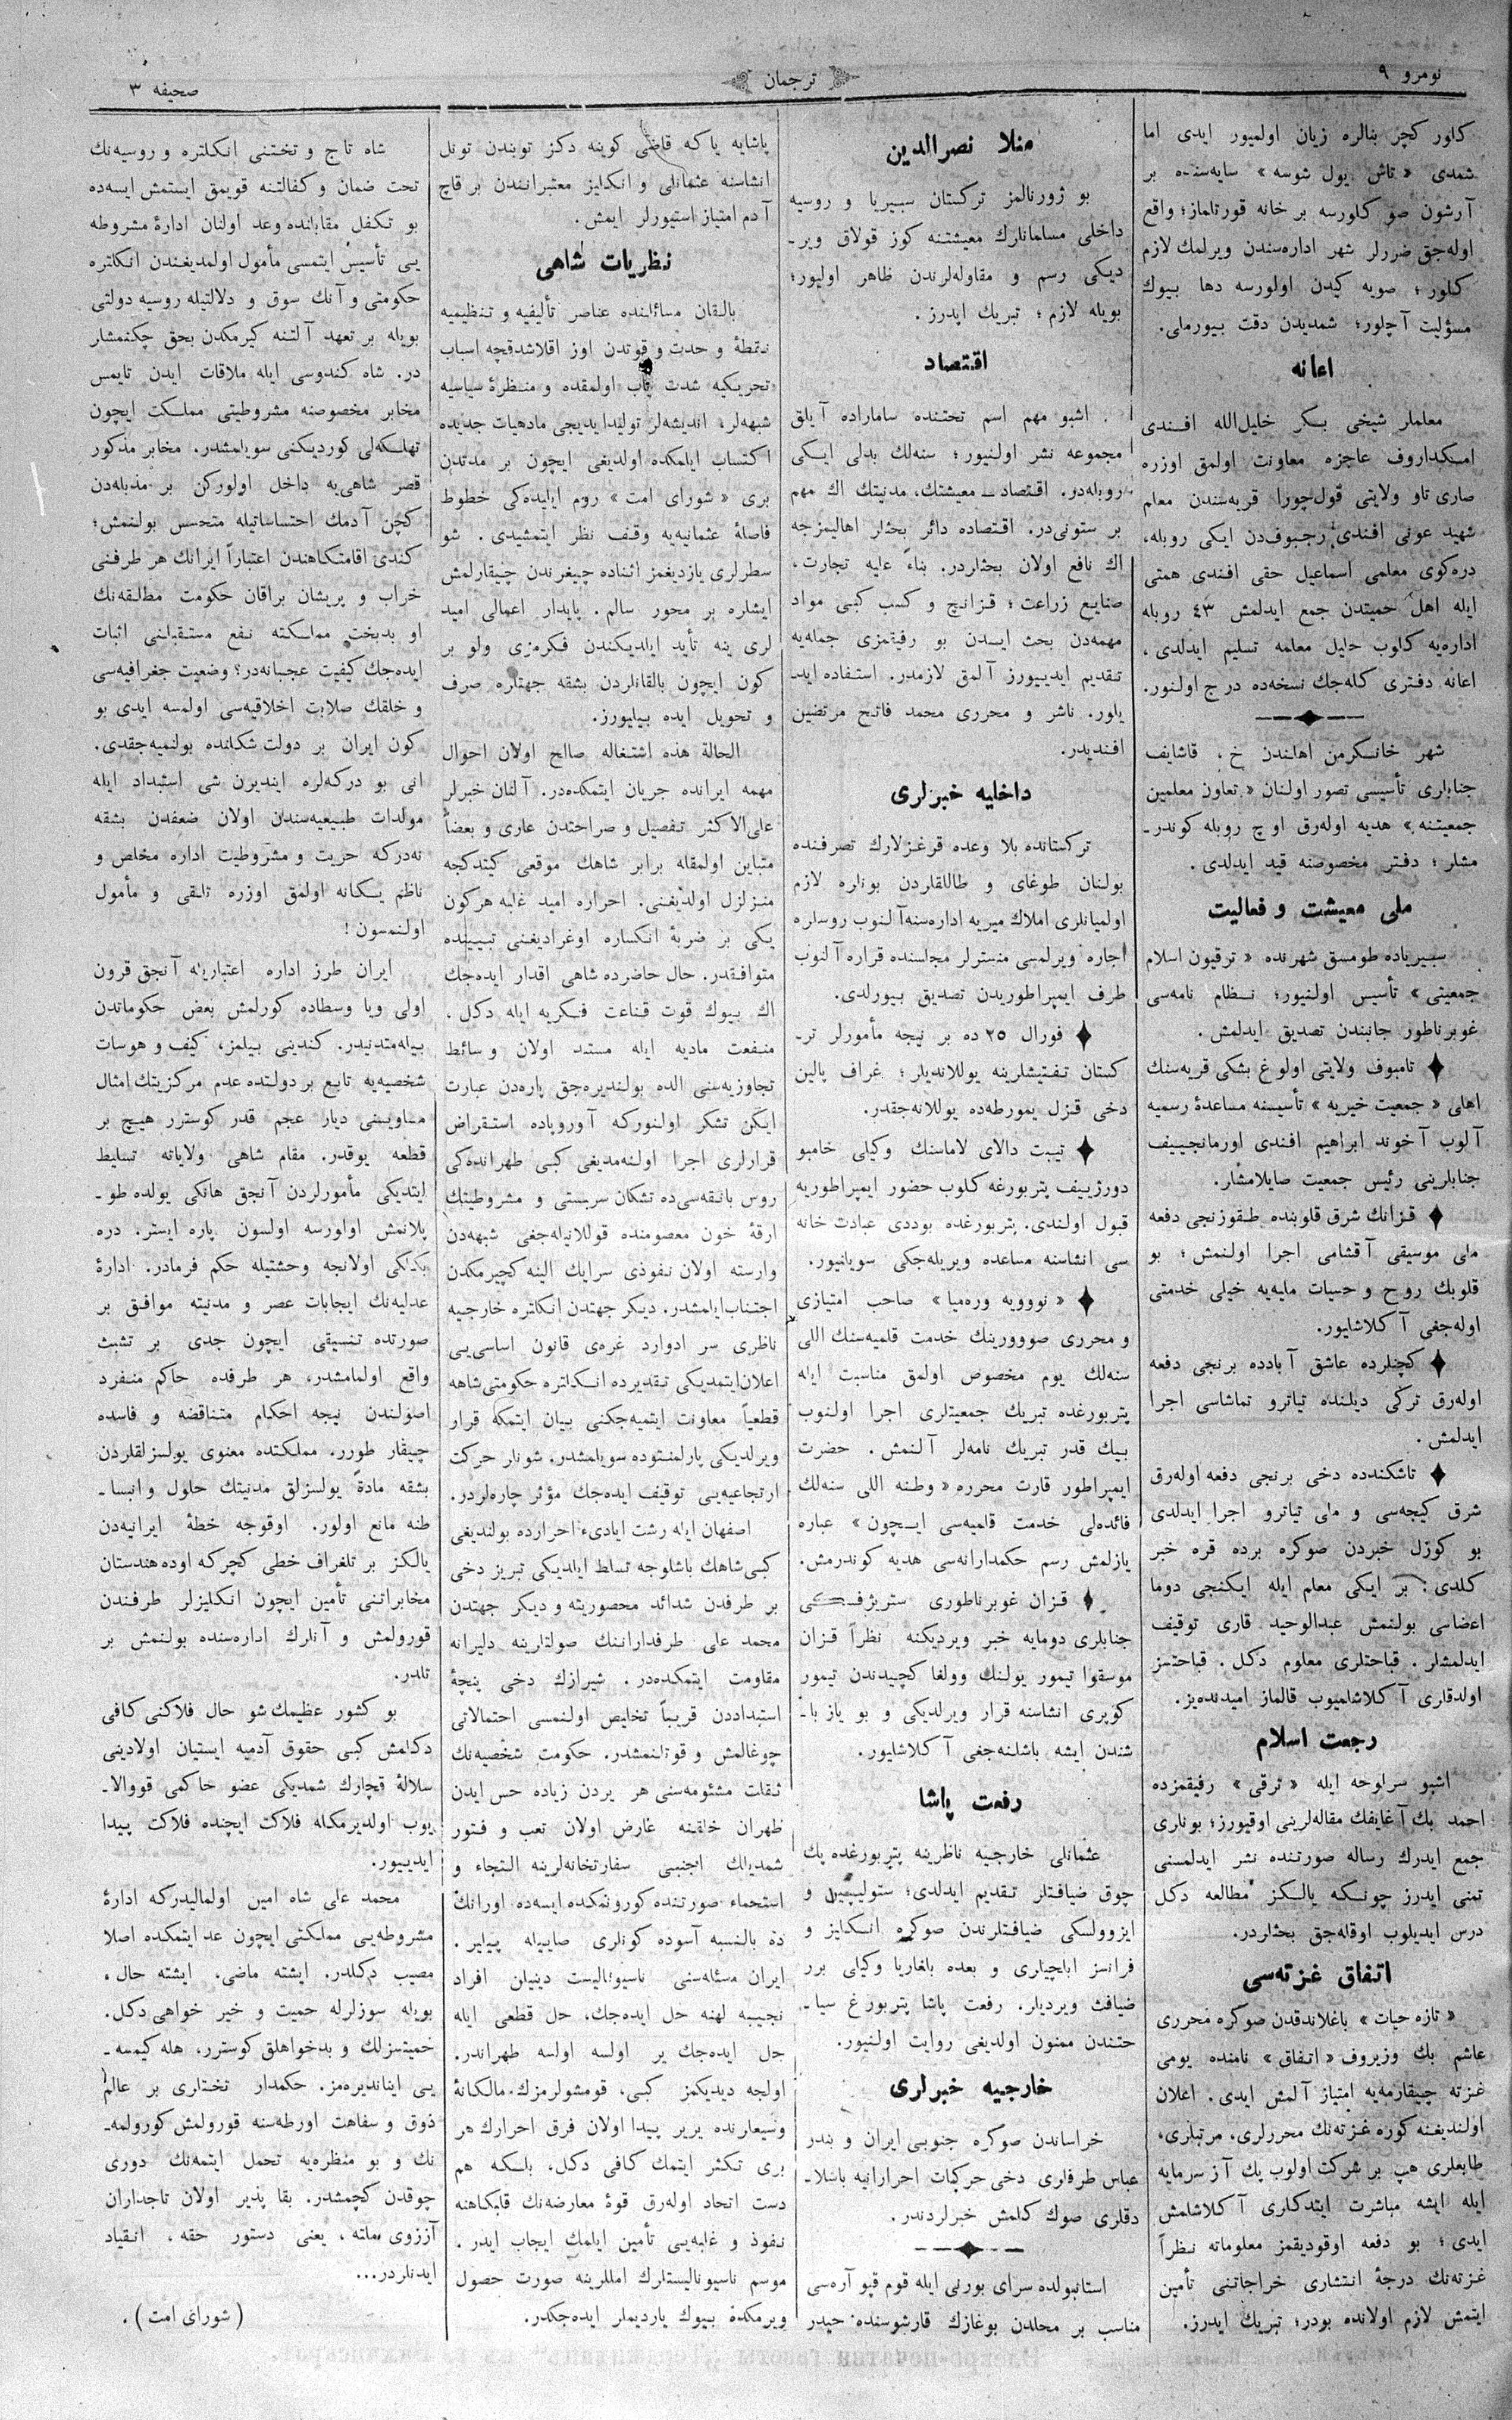 نومرو ٩
ترجمان
صحيفه ٣
كلور كچر بنالره زيان اولميور ايدى اما
شمدى « تاش يول شوسه » سايه‌سنده بر
آرشون صو كلورسه بر خانه قورتلماز؛ واقع
اوله‌جق ضررلر شهر اداره‌سندن ويرلمك لازم
كلور؛ صويه كيدن اولورسه دها بيوك
مسؤليت آچلور؛ شمديدن دقت بيورملى.
اعانه
معلملر شيخى بكر خليل‌الله افندى
امكداروف عاجزه معاونت اولمق اوزره
صارى تاو ولايتى قول‌چورا قريه‌سندن معلم
شهيد عونى افندى رجبوف‌دن ايكى روبله،
دره‌كوى معلمى اسماعيل حقى افندى همتى
ايله اهل حميتدن جمع ايدلمش ٤٣ روبله
اداره‌يه كلوب خليل معلمه تسليم ايدلدى،
اعانه دفترى كله‌جك نسخه‌ده درج اولنور.
شهر خانكرمن اهلندن خ، قاشايف
جنابلرى تأسيسى تصور اولنان « تعاون معلمين
جمعيتنه » هديه اوله‌رق اوچ روبله كوندر-
مشلر؛ دفتر مخصوصنه قيد ايدلدى.
ملى معيشت و فعاليت
سبيرياده طومسق شهرنده « ترقيون اسلام
جمعيتى » تأسيس اولنيور؛ نظام نامه‌سى
غوبرناطور جانبندن تصديق ايدلمش.
تامبوف ولايتى اولوغ بشكى قريه‌سنك
اهلى « جمعيت خيريه » تأسيسنه مساعدۀ رسميه
آلوب آخوند ابراهيم افندى اورمانجييف
جنابلرينى رئيس جمعيت صايلامشلر.
قزانك شرق قلوبنده طقوزنجى دفعه
ملى موسيقى آقشامى اجرا اولنمش؛ بو
قلوبك روح و حسيات مليه‌يه خيلى خدمتى
اوله‌جغى آكلاشليور.
كچنلرده عاشق آبادده برنجى دفعه
اوله‌رق تركى ديلنده تياترو تماشاسى اجرا
ايدلمش.
تاشكندده دخى برنجى دفعه اوله‌رق
شرق كيجه‌سى و ملى تياترو اجرا ايدلدى
بو كوزل خبردن صوكره برده قره خبر
كلدى: بر ايكى معلم ايله ايكنجى دوما
اعضاسى بولنمش عبدالوحيد قارى توقيف
ايدلمشلر. قباحتلرى معلوم دكل. قباحتسز
اولدقلرى آكلاشلميوب قالماز اميدنده‌يز.
رجعت اسلام
اشبو سرلوحه ايله « ترقى » رفيقمزده
احمد بك آغايفك مقاله‌لرينى اوقيورز؛ بونلرى
جمع ايدرك رساله صورتنده نشر ايدلمسنى
تمنى ايدرز چونكه يالكز مطالعه دكل
درس ايديلوب اوقله‌جق بحثلردر.
اتفاق غزته‌سى
« تازه حيات » باغلاندقدن صوكره محررى
هاشم بك وزيروف « اتفاق » نامنده يومى
غزته چيقارمه‌يه امتياز آلمش ايدى. اعلان
اولنديغنه كوره غزته‌نك محررلرى، مرتبلرى،
طابعلرى هپ بر شركت اولوب پك آز سرمايه
ايله ايشه مباشرت ايتدكلرى آكلاشلمش
ايدى؛ بو دفعه اوقوديقمز معلوماته نظراً
غزته‌نك درجۀ انتشارى خراجاتنى تأمين
ايتمش لازم اولانده بودر؛ تبريك ايدرز.
منلا نصرالدين
بو ژورنالمز تركستان سبيريا و روسيه
داخلى مسلمانلرك معيشتنه كوز قولاق وير-
ديكى رسم و مقاوله‌لرندن ظاهر اوليور؛
بويله لازم؛ تبريك ايدرز.
اقتصاد
اشبو مهم اسم تحتنده ساماراده آيلق
مجموعه نشر اولنيور؛ سنه‌لك بدلى ايكى
روبله‌دو. اقتصاد ــ معيشتك، مدنيتك اك مهم
بر ستونى‌در. اقتصاده دائر بحثلر اهاليمزجه
اك نافع اولان بحثلردر. بناءً عليه تجارت،
صنايع زراعت؛ قزانچ و كسب كبى مواد
مهمه‌دن بحث ايدن بو رفيقمزى جمله‌يه
تقديم ايدييورز آلمق لازمدر. استفاده ايد-
يلور. ناشر و محررى محمد فاتح مرتضين
افنديدر.
داخليه خبرلرى
تركستانده بلا وعده قرغزلارك تصرفنده
بولنان طوغاى و طاللقلردن بونلره لازم
اولميانلرى املاك ميريه اداره‌سنه آلنوب روسلره
اجاره ويرلمسى منسترلر مجلسنده قراره آلنوب
طرف ايمپراطوريدن تصديق بيورلدى.
فورال ٢٥ ده بر نيچه مأمورلر تر-
كستان تفتيشلرينه يوللانديلر؛ غراف پالين
دخى قزل يمورطه‌ده يوللانه‌جقدر.
تيبت دالاى لاماسنك وكيلى خامبو
دورژييف پتربورغه كلوب حضور ايمپراطوريه
قبول اولندى. پتربورغده بوددى عبادت خانه
سى انشاسنه مساعده ويريله‌جكى سويلنيور.
« نوويه وره‌ميا » صاحب امتيازى
و محررى صوورينك خدمت قلميه‌سنك اللى
سنه‌لك يوم مخصوص اولمق مناسبت ايله
پتربورغده تبريك جمعيتلرى اجرا اولنوب
بيك قدر تبريك نامه‌لر آلنمش. حضرت
ايمپراطور قارت محرره « وطنه اللى سنه‌لك
فائده‌لى خدمت قلميه‌سى ايچون » عباره
يازلمش رسم حكمدارانه‌سى هديه كوندرمش.
قزان غوبرناطورى ستريژفسكى
جنابلرى دومايه خبر ويرديكنه نظراً قزان
موسقوا تيمور يولنك وولغا كچيدندن تيمور
كوپرى انشاسنه قرار ويرلديكى و بو ياز با-
شندن ايشه باشلنه‌جغى آكلاشليور.
رفعت پاشا
عثمانلى خارجيه ناظرينه پتربورغده پك
چوق ضيافتلر تقديم ايدلدى؛ ستوليپين و
ايزوولسكى ضيافتلرندن صوكره انكليز و
فرانسز ايلچيلرى و بعده بلغاريا وكيلى برر
ضيافت ويرديلر. رفعت پاشا پتربورغ سيا-
حتندن ممنون اولديغى روايت اولنيور.
خارجيه خبرلرى
خراساندن صوكره جنوبى ايران و بندر
عباس طرفلرى دخى حركات احرارانيه باشلا-
دقلرى صوك كلمش خبرلردندر.
استانبولده سراى بورنى ايله قوم قپو آره‌سى
مناسب بر محلدن بوغازك قارشوسنده حيدر
پاشايه ياكه قاضى كوينه دكز توبندن تونل
انشاسنه عثمانلى و انكليز معتبرانندن بر قاچ
آدم امتياز استيورلر ايمش.
نظريات شاهى
بالقان مسائلنده عناصر تأليفيه و تنظيميه
نقطۀ وحدت و قوتدن اوز اقلاشدقچه اسباب
تحريكيه شدت ياب اولمقده و منظرۀ سياسيه
شبهه‌لر، انديشه‌لر توليدايديجى مادهيات جديده
اكتساب ايلمكده اولديغى ايچون بر مدتدن
برى « شوراى امت » روم ايليده‌كى خطوط
فاصلۀ عثمانيه‌يه وقف نظر ايتمشيدى. شو
سطرلرى يازديغمز اثناده چيغرندن چيقارلمش
ايشلره بر محور سالم. پايدار اعمالى اميد
لرى ينه تأيد ايلديكندن فكرمزى ولو بر
كون ايچون بالقانلردن بشقه جهتلره صرف
و تحويل ايده بيليورز.
الحالة هذه اشتغاله صالح اولان احوال
مهمه ايرانده جريان ايتمكده‌در. آلنان خبرلر
على‌الاكثر تفصيل و صراحتدن عارى و بعضاً
متباين اولمقله برابر شاهك موقعى كيتدكجه
متزلزل اولديغنى. احراره اميد غلبه هركون
يكى بر ضربۀ انكساره اوغراديغنى تبيينده
متوافقدر. حال حاضرده شاهى اقدار ايده‌جك
اك بيوك قوت قناعت فكريه ايله دكل،
منفعت ماديه ايله مستند اولان وسائط
تجاوزيه‌سنى الده بولنديره‌جق پاره‌دن عبارت
ايكن تشكر اولنوركه آوروپاده استقراض
قرارلرى اجرا اولنه‌مديغى كبى طهرانده‌كى
روس بانقه‌سى‌ده تشكان سربستى و مشروطيتك
ارقۀ خون معصومنده قوللانيله‌جغى شبهه‌دن
وارسته اولان نفوذى سرايك الينه كچيرمكدن
اجتناب‌ايلمشدر. ديكر جهتدن انكلتره خارجيه
ناظرى سر ادوارد غره‌ى قانون اساسى‌يى
اعلان‌ايتمديكى تقديرده انكلتره حكومتى‌شاهه
قطعياً معاونت ايتميه‌جكنى بيان ايتمكه قرار
ويرلديكى پارلمنتوده سويلمشدر. شونلر حركت
ارتجاعيه‌يى توقيف ايده‌جك مؤثر چاره‌لردر.
اصفهان ايله رشت ايادىء احرارده بولنديغى
كبى‌شاهك باشلوجه تسلط ايلديكى تبريز دخى
بر طرفدن شدائد محصوريته و ديكر جهتدن
محمد على طرفدارانىنك صولتلرينه دليرانه
مقاومت ايتمكده‌در. شيرازك دخى پنچۀ
استبداددن قريباً تخليص اولنمسى احتمالاتى
چوغالمش و قوتلنمشدر. حكومت شخصيه‌نك
ثقلت مشئومه‌سنى هر يردن زياده حس ايدن
طهران خلقنه عارض اولان تعب و فتور
شمديلك اجنبى سفارتخانه‌لرينه التجاء و
استحماء صورتنده كورونمكده ايسه‌ده اورانك
ده بالنسبه آسوده كونلرى صاييله بيلير.
ايران مسئله‌سنى ناسيوناليست دينيلن افراد
نجيبه لهنه حل ايده‌جك، حل قطعى ايله
حل ايده‌جك ير اولسه اولسه طهراندر.
اولجه ديديكمز كبى، قومشولرمزك. مالكانۀ
وسيعارنده يرير پيدا اولان فرق احرارك هر
برى تكثر ايتمك كافى دكل، بلكه هم
دست اتحاد اوله‌رق قوۀ معارضه‌نك قلبكاهنه
نفوذ و غلبه‌يى تأمين ايلمك ايجاب ايدر.
موسم ناسيوناليستلرك امللرينه صورت حصول
ويرمكدة بيوك يارديملر ايده‌جكدر.
شاه تاج و تختنى انكلتره و روسيه‌نك
تحت ضمان و كفالتنه قويمق ايستمش ايسه‌ده
بو تكفل مقابلنده وعد اولنان ادارۀ مشروطه
يى تأسيس ايتمسى مأمول اولمديغندن انكلتره
حكومتى و آنك سوق و دلالتيله روسيه دولتى
بويله بر تعهد آلتنه كيرمكدن بحق چكنمشلر
در. شاه كندوسى ايله ملاقات ايدن تايمس
مخابر مخصوصنه مشروطيتى مملكت ايچون
تهلكه‌لى كورديكنى سويلمشدر. مخابر مذكور
قصر شاهى‌يه داخل اولوركن بر مذبله‌دن
كچن آدمك احتساساتيله متحسس بولنمش؛
كندى اقامتكاهندن اعتباراً ايرانك هر طرفنى
خراب و پريشان براقان حكومت مطلقه‌نك
او بدبخت مملكته نفع مستقبلنى اثبات
ايده‌جك كيفيت عجبانه‌در؟ وضعيت جغرافيه‌سى
و خلقك صلابت اخلاقيه‌سى اولمسه ايدى بو
كون ايران بر دولت شكلنده بولنميه‌جقدى.
انى بو دركه‌لره اينديرن شى استبداد ايله
مولدات طبيعيه‌سندن اولان ضعفدن بشقه
نه‌دركه حريت و مشروطيت اداره مخلص و
ناظم يكانه اولمق اوزره تلقى و مأمول
اولنمسون!
ايران طرز اداره اعتباريله آنجق قرون
اولى ويا وسطاده كورلمش بعض حكوماتدن
بيله‌متدنيدر. كندينى بيلمز، كيف و هوسات
شخصيه‌يه تابع بر دولتده عدم مركزيتك امثال
مساويسنى ديار عجم قدر كوسترر هيچ بر
قطعه يوقدر. مقام شاهى ولاياته تسليط
ايتديكى مأمورلردن آنجق هانكى يولده طو-
پلانمش اولورسه اولسون پاره ايستر. دره
بكلكى اولانجه وحشتيله حكم فرمادر. ادارۀ
عدليه‌نك ايجابات عصر و مدنيته موافق بر
صورتده تنسيقى ايچون جدى بر تشبث
واقع اولمامشدر، هر طرفده حاكم منفرد
اصولندن نيجه احكام متناقضه و فاسده
چيقار طورر. مملكتده معنوى يولسزلقلردن
بشقه مادةً يولسزلق مدنيتك حلول و انبسا-
طنه مانع اولور. اوقوجه خطۀ ايرانيه‌دن
يالكز بر تلغراف خطى كچركه اوده هندستان
مخابراتنى تأمين ايچون انكليزلر طرفندن
قورولمش و آنلرك اداره‌سنده بولنمش بر
تلدر.
بو كشور عظيمك شو حال فلاكتى كافى
دكلمش كبى حقوق آدميه ايستيان اولادينى
سلالۀ قچارك شمديكى عضو حاكمى قووالا-
يوب اولديرمكله فلاكت ايچنده فلاكت پيدا
ايدييور.
محمد على شاه امين اولماليدركه ادارۀ
مشروطه‌يى مملكتى ايچون عد ايتمكده اصلا
مصيب دكلدر. ايشته ماضى، ايشته حال.
بويله سوزلرله حميت و خير خواهى دكل.
حميتسزلك و بدخواهلق كوسترر، هله كيمسه-
يى اينانديره‌مز. حكمدار تختلرى بر عالم
ذوق و سفاهت اورطه‌سنه قورولمش كورولمه-
نك و بو منظره‌يه تحمل ايتمه‌نك دورى
چوقدن كچمشدر. بقا پذير اولان تاجداران
آرزوى ملته، يعنى دستور حقه، انقياد
ايدنلردر...
( شوراى امت ).